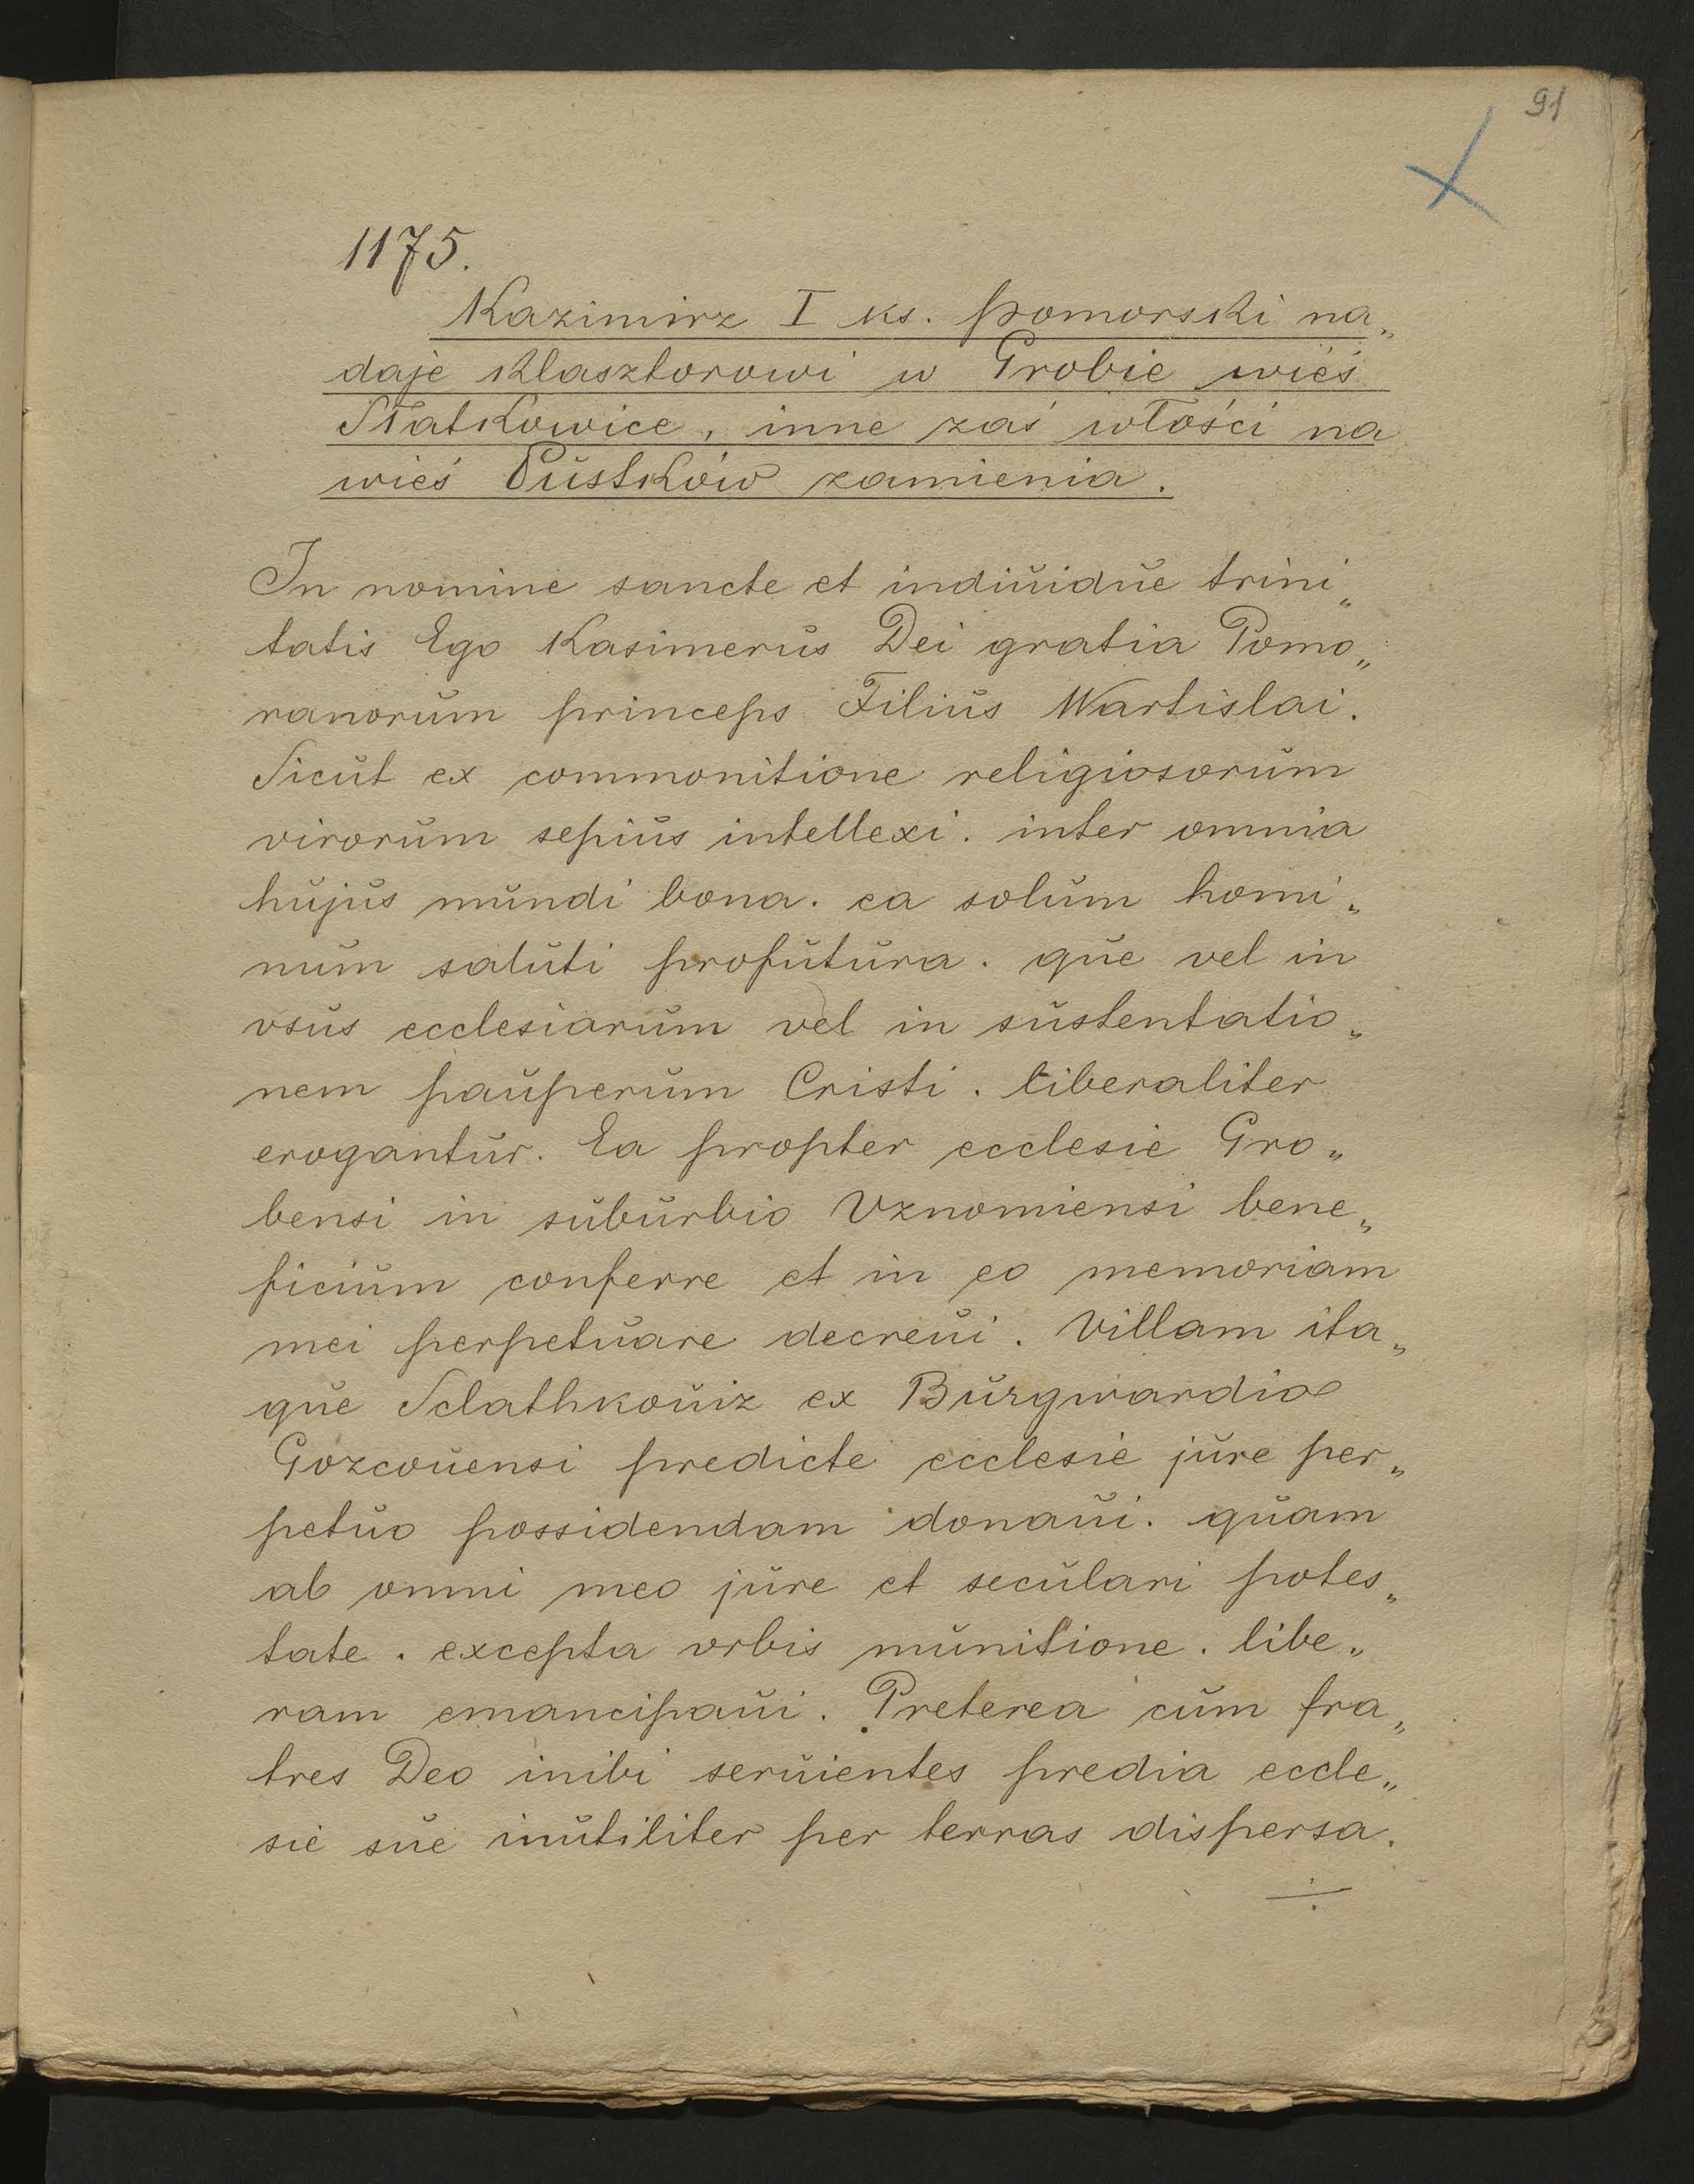 91
1175.
Kazimirz I ks. pomorski na„
daje klasztorowi w Grobie wieś
Słatkowice, inne zaś włości na
wieś Pustków zamienia.
In nomine sancte et indiuidue trini„
tatis Ego Kasimerus Dei gratia Pomo„
ranorum princeps Filius Wartislai.
Sicut ex commonitione religiosorum
virorum sepius intellexi. inter omnia
hujus mundi bona. ea solum homi„
num saluti profutura. que vel in
vsus ecclesiarum vel in sustentatio„
nem pauperum Cristi. liberaliter
erogantur. Ea propter ecclesie Gro„
bensi in suburbio Vznomiensi bene„
ficium conferre et in eo memoriam
mei perpetuare decreui. Villam ita„
que Sclathkouiz ex Burgwardio
Gozcouensi predicte ecclesie jure per„
petuo possidendam donaui. quam
ab omni meo jure et seculari potes„
tate. excepta vrbis munitione. libe„
ram emancipaui. Preterea cum fra„
tres Deo inibi seruientes predia eccle„
sie sue inutiliter per terras dispersa.
÷